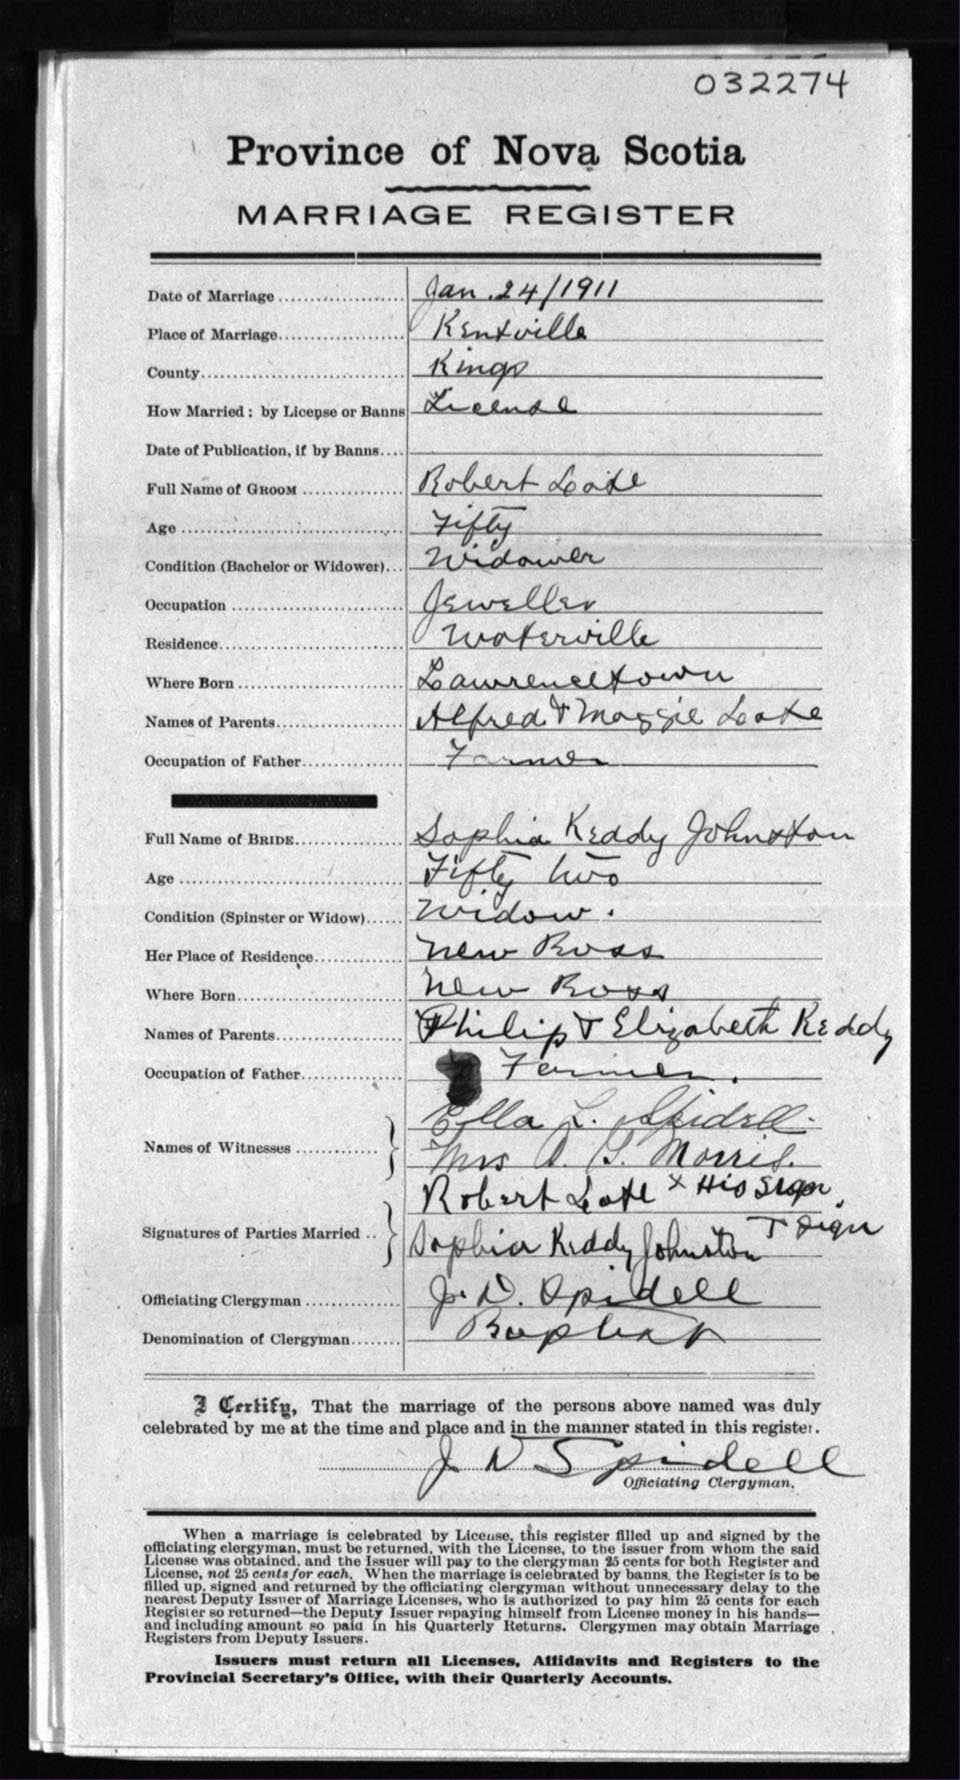 032274
Province of Nova Scotia
MARRIAGE REGISTER
Date of Marriage Jan. 24/1911
Place of Marriage Kentville
County Kings
How Married: by License or Banns License
Date of Publication, if by Banns
Full Name of GROOM Robert Lake
Age Fifty
Condition (Bachelor or Widower) Widower
Occupation Jeweller
Residence Waterville
Where Born Lawrencetown
Names of Parents Alfred & Maggie Lake
Occupation of Father Farmer
Full Name of BRIDE Sophia Keddy Johnston
Age Fifty two
Condition (Spinster or Widow) Widow.
Her Place of Residence New Ross
Where Born New Ross
Names of Parents Philip & Elizabeth Keddy
Occupation of Father Farmer.
Names of Witnesses Ella L. Spidell.
Mrs A. G. Morris.
Signatures of Parties Married Robert Lake x His sign
Sophia Keddy Johnston
Officiating Clergyman J. D. Spidell
Denomination of Clergyman Baptist
I Certify, That the marriage of the persons above named was duly
celebrated by me at the time and place and in the manner stated in this register.
J. D. Spidell
Officiating Clergyman.
When a marriage is celebrated by License, this register filled up and signed by the
officiating clergyman, must be returned, with the License, to the issuer from whom the said
License was obtained, and the Issuer will pay to the clergyman 25 cents for both Register and
License, not 25 cents for each. When the marriage is celebrated by banns, the Register is to be
filled up, signed and returned by the officiating clergyman without unnecessary delay to the
nearest Deputy Issuer of Marriage Licenses, who is authorized to pay him 25 cents for each
Register so returned—the Deputy Issuer repaying himself from License money in his hands—
and including amount so paid in his Quarterly Returns. Clergymen may obtain Marriage
Registers from Deputy Issuers.
Issuers must return all Licenses, Affidavits and Registers to the
Provincial Secretary's Office, with their Quarterly Accounts.